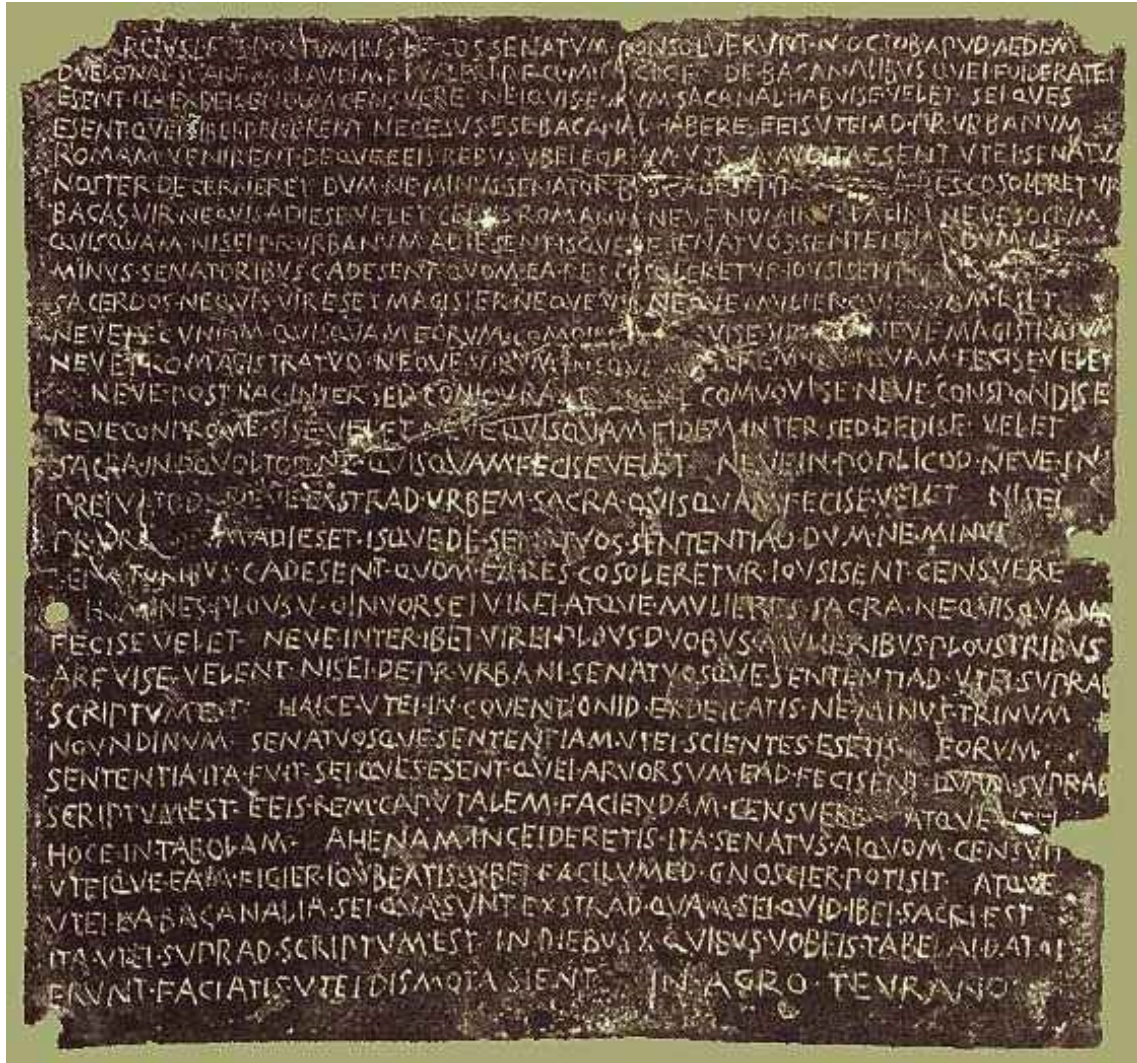 SENATVM CONSOLVERVNT·N·OCTOB·APVD·AEDEM
DE·BACANALIBVS·QVEI·FOIDERATEI
ESENT·ITA·EXDEICENDVM·CENSVERE NEIQVIS·EORVM·BACANAL·HABVISE·VELET SEI·QVES
ESENT·QVEI·SIBEI·DEICERENT NECESVS·ESE·BACANAL·HABERE·EEIS·VTEI·AD·PR·VRBANVM
ROMAM·VENIRENT·DEQVE·EEIS·REBVS·VBEI·EORVM ESENT VTEI·SENATVS
NOSTER·DECERNERET DVM·NE·MINVS·SENATORBVS RES·COSOLERETVR
BACAS·VIR·NEQVIS·ADIESE·VELET CEIVIS·ROMANVS NEVE·NOMINVS·LATINI NEVE·SOCIVM
QVISQVAM·NISEI·PR·VRBANVM·ADIESENT·ISQVE·DE·SENATVOS·SENTENTIAD DVM·NE
MINVS·SENATORIBVS·C·ADESENT·QVOM·EA·RES·COSOLERETVR·IOVSISENT
SACERDOS·NEQVIS·VIR·ESET MAGISTER·NEQVE·VIR NEQVE·MVLIER·QVISQVAM·ESET
NEVE·PECVNIAM·QVISQVAM·EORVM·COMOINEM NEVE·MAGISTRATVM
NEVE·PROMAGISTRATVO·NEQVE·VIRVM QVISQVAM·FECISE·VELET
NEVE·POST·HAC·INTER·SED·CONIOVRA COMVOVISE·NEVE·CONSPONDISE
NEVE·CONPROMESISE·VELET NEVE·QVISQVAM·FIDEM·INTER·SED·DEDISE VELET
SACRA·IN·DQVOLTOD·NE·QVISQVAM·FECISE·VELET NEVE·IN·POPLICOD·NEVE·IN
PREIVATOD·NEVE·EXSTRAD·VRBEM·SACRA·QVISQVAM·FECISE·VELET NISEI
PR·VRBANVM·ADIESET·ISQVE·DE·SENATVOS·SENTENTIAD·DVM·NE·MINVS
SENATORIBVS·C·ADESENT·QVOM·EA·RES·COSOLERETVR·IOVSISENT CENSVERE
HOMINES·PLOVS·V·OINVORSEI VIREI·ATQVE·MVLIERES SACRA·NE·QVISQVAM
FECISE·VELET NEVE·INTER·IBEI VIREI·PLOVS·DVOBVS MVLIERIBVS·PLOVS·TRIBVS
ARFVISE·VELENT·NISEI·DE·PR·VRBANI·SENATVOSQVE·SENTENTIAD·VTEI·SVPRAD
SCRIPTVM·EST HAICE·VTEI·IN·COVENTIONID·EXDEICATIS·NE·MINVS·TRINVM
NOVNDINVM SENATVOSQVE·SENTENTIAM·VTEI·SCIENTES·ESETIS EORVM
SENTENTIA·ITA·FVIT·SEI·QVES·ESENT·QVEI·ARVORSVM·EAD·FECISENT QVAM·SVPRAD
SCRIPTVM·EST EEIS·REM·CAPVTALEM·FACIENDAM·CENSVERE ATQVE·VTEI
HOCE·IN·TABOLAM AHENAM·INCEIDERETIS·ITA·SENATVS·AIQVOM·CENSVIT
VTEIQVE·EAM·FIGIER·IOVBEATIS·VBEI FACILVMED·GNOSCIER·POTISIT ATQVE
VTEI·EA·BACANALIA·SEI·QVA·SVNT·EXSTRAD·QVAM·SEI·QVID·IBEI·SACRI·EST
ITA·VTEI·SVPRAD·SCRIPTVM·EST IN·DIEBVS·X·QVIBVS·VOBEIS·TABELAI·DATAI
ERVNT·FACIATIS·VTEI·DISMOTA·SIENT IN·AGRO·TEVRANO